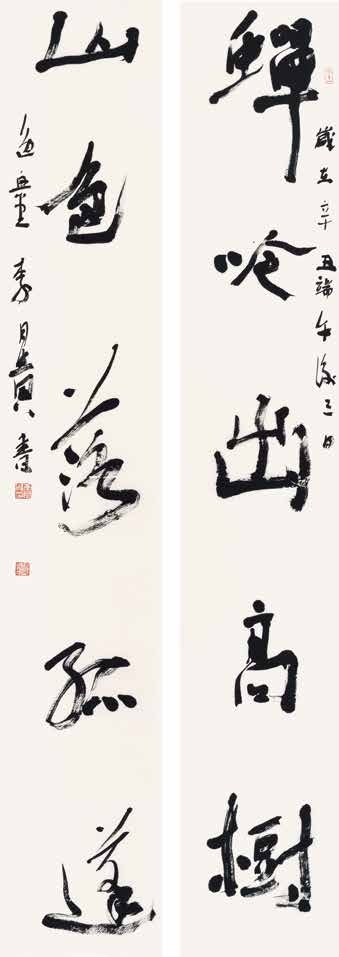 歲在辛丑端午後三日
蟬唫出高樹
山色落孤蓬
李 書